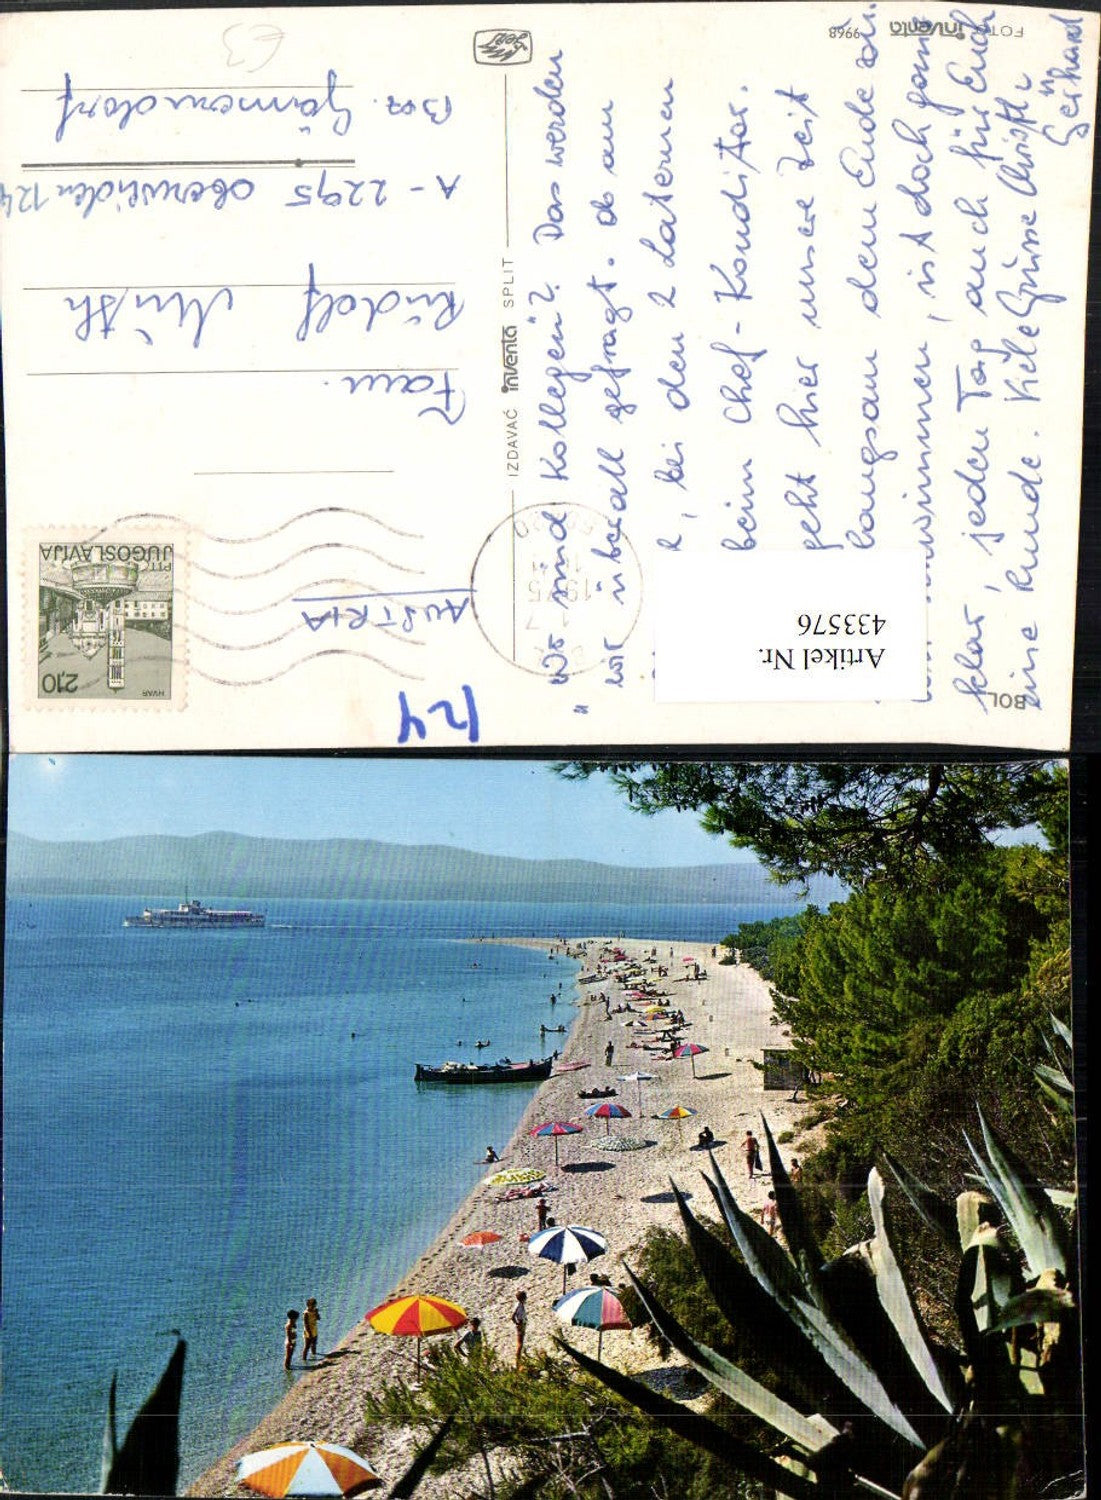 "Wo sind Kollegen"? Das werden
wir überall gefragt. ob am
, bei den 2 Laternen
beim Chef-Konditor.
geht hier unsere Zeit
langsam dem Ende zu.
, ist doch ganz
klar, jeden Tag auch für Euch
eine Runde. Viele Grüße Christl u
Gerhard
AUSTRIA
Fam.
Rudolf Müth
A-2295 Oberweiden 124
Bez. Gänserndorf
124
€3
IZDAVAČ inventa SPLIT
FOTO inventa
9968
BOL
JUGOSLAVIJA
PTT
2,10
HVAR
1975
Artikel Nr.
433576